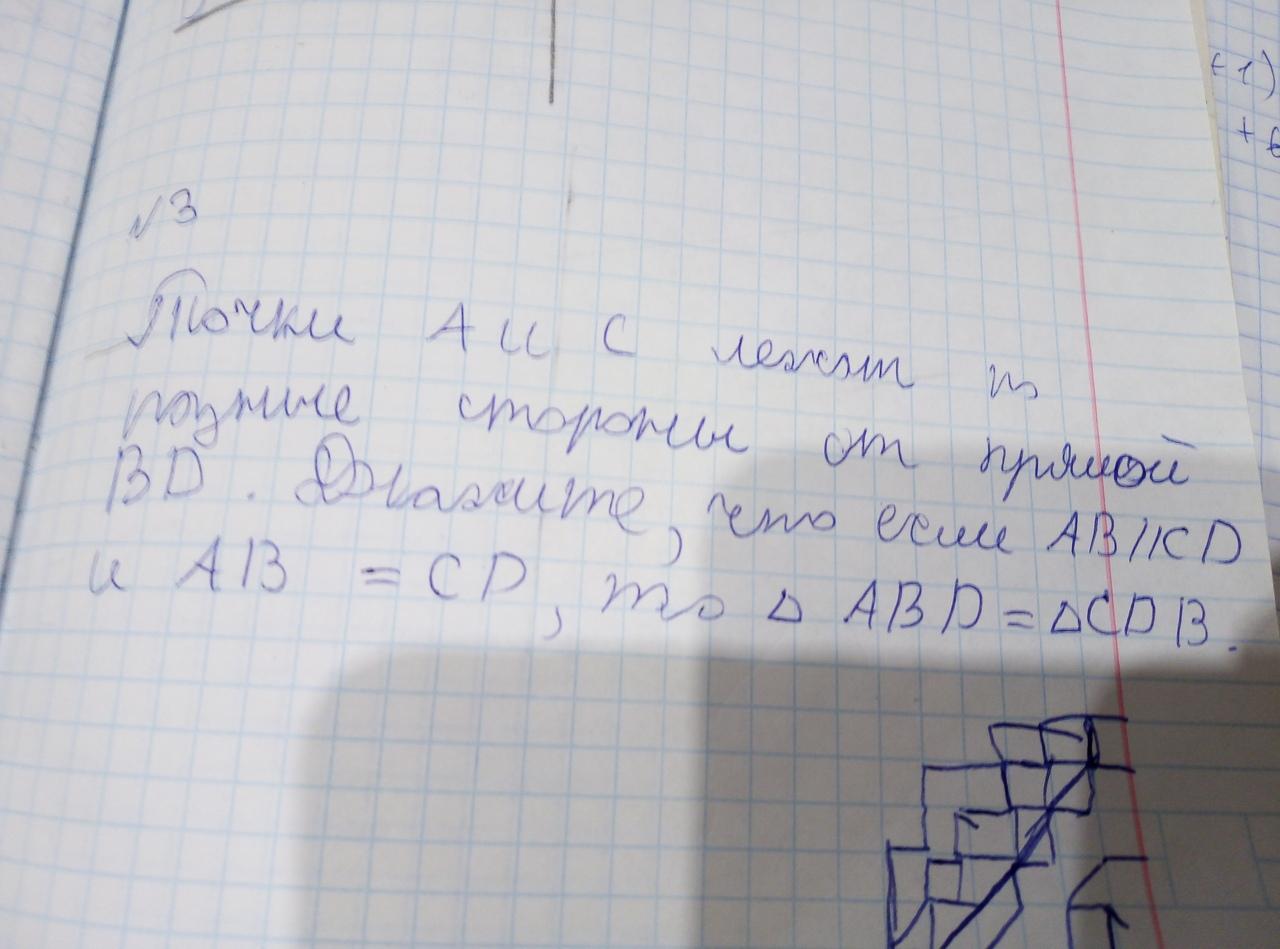 №3
Точки A и C лежат по
разные стороны от прямой
BD. Докажите, что если AB||CD
и AB = CD, то △ ABD = △CDB.
-1)
+ 6